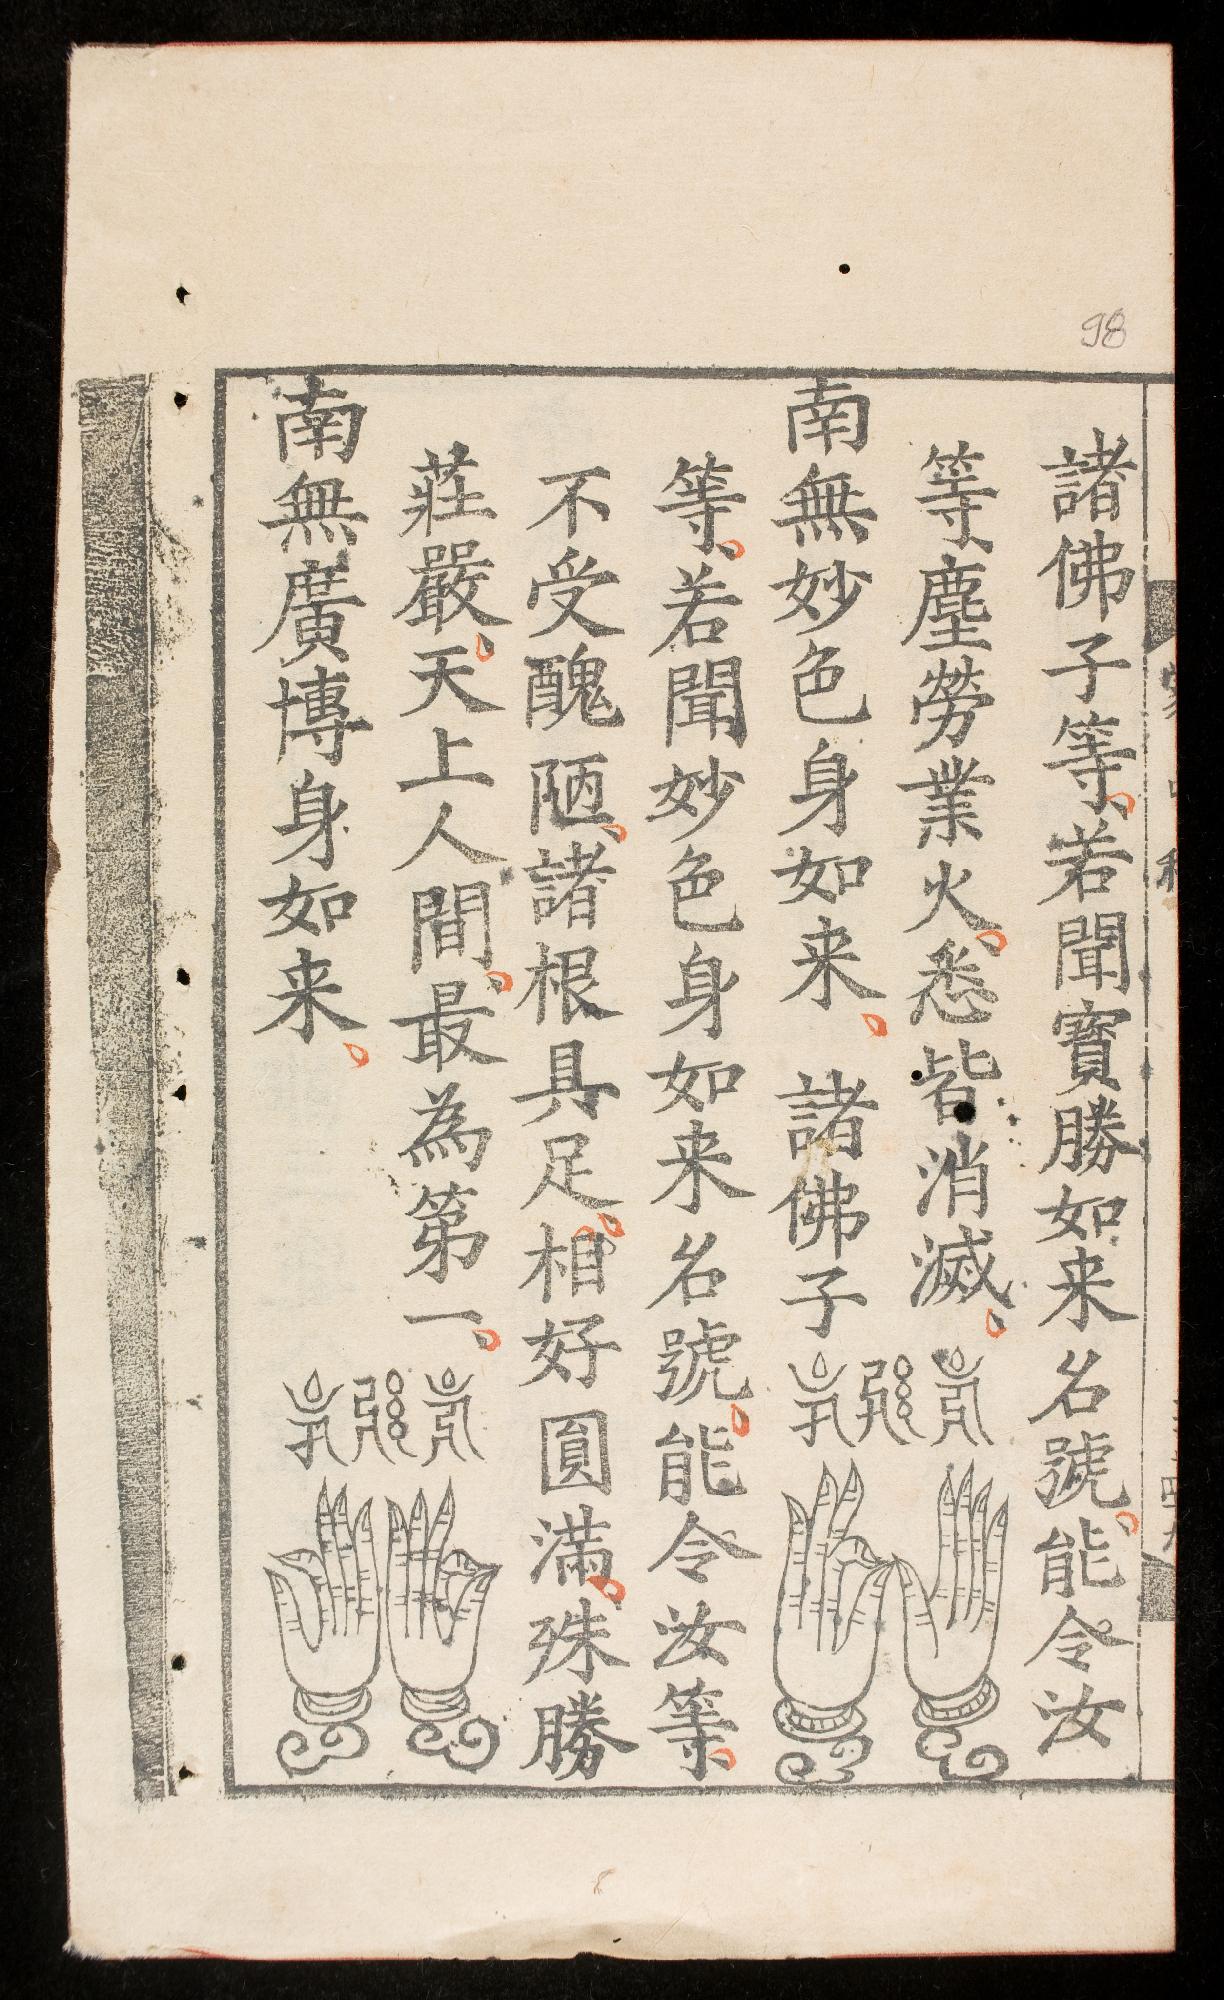 98
諸佛子等若聞寶勝如来名號能令汝
等塵勞業火悉皆消滅
南無妙色身如来 諸佛子
等若聞妙色身如来名號能令汝等
不受醜陋諸根具足相好圓滿殊勝
莊嚴天上人間最為第一
南無廣博身如来